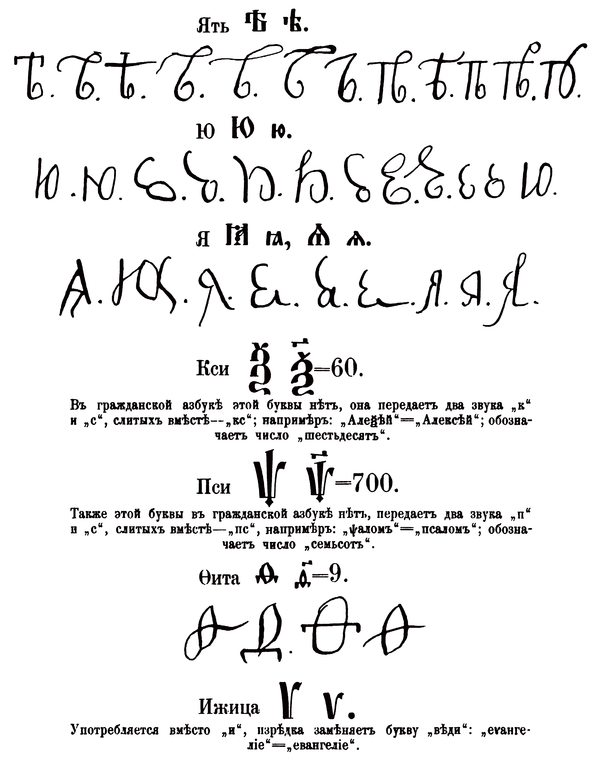 Ять Ѣ ѣ.
ю Ю ю.
я Ꙗ ꙗ, Ѧ ѧ.
Кси Ѯ ѯ҃=60.
Въ гражданской азбукѣ этой буквы нѣтъ, она передаетъ два звука „к“
и „с“, слитыхъ вмѣстѣ--„кс“; напримѣръ: „Алеѯѣй“=„Алексѣй“; обозна-
чаетъ число „шестьдесятъ“.
Пси Ѱ ѱ҃=700.
Также этой буквы въ гражданской азбукѣ нѣтъ, передаетъ два звука „п“
и „с“, слитыхъ вмѣстѣ—„пс“, напримѣръ: „ѱаломъ“=„псаломъ“; обозна-
чаетъ число „семьсотъ“.
Ѳита Ѳ ѳ҃=9.
Ижица Ѵ ѵ.
Употребляется вмѣсто „и“, изрѣдка замѣняетъ букву „вѣди“: „еѵанге-
ліе“=„евангеліе“.